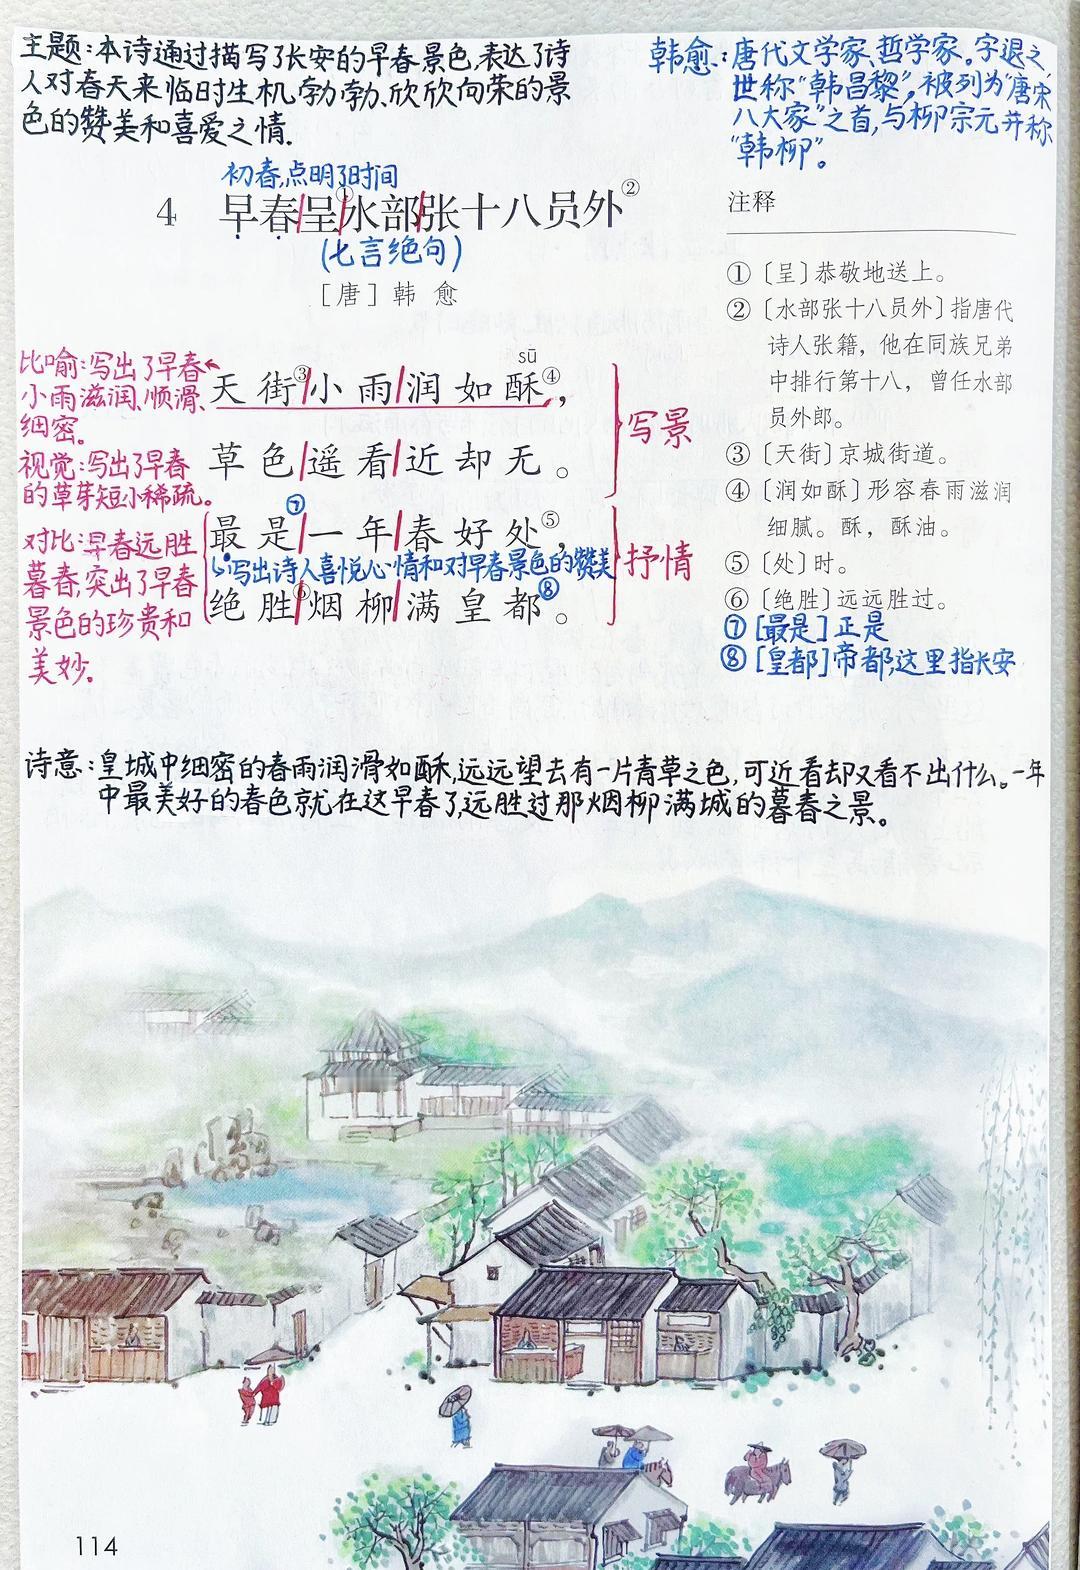 主题:本诗通过描写了长安的早春景色,表达了诗
人对春天来临时生机勃勃、欣欣向荣的景
色的赞美和喜爱之情.
韩愈:唐代文学家、哲学家。字退之,
世称“韩昌黎”,被列为“唐宋
八大家”之首,与柳宗元并称
“韩柳”。
初春,点明了时间
4 早春呈①水部张十八员外②
(七言绝句)
[唐]韩 愈
比喻:写出了早春
小雨滋润、顺滑、
细密。
视觉:写出了早春
的草芽短小稀疏。
对比:早春远胜
暮春,突出了早春
景色的珍贵和
美妙.
sū
天街③小雨润如酥④,
草色遥看近却无。
写景
⑦
最是一年春好处⑤,
写出诗人喜悦心情和对早春景色的赞美
绝胜⑥烟柳满皇都⑧。
抒情
注释
①〔呈〕恭敬地送上。
②〔水部张十八员外〕指唐代
诗人张籍,他在同族兄弟
中排行第十八,曾任水部
员外郎。
③〔天街〕京城街道。
④〔润如酥〕形容春雨滋润
细腻。酥,酥油。
⑤〔处〕时。
⑥〔绝胜〕远远胜过。
⑦[最是]正是
⑧[皇都]帝都,这里指长安
诗意:皇城中细密的春雨润滑如酥,远远望去有一片青草之色,可近看却又看不出什么。一年
中最美好的春色就在这早春了,远胜过那烟柳满城的暮春之景。
114